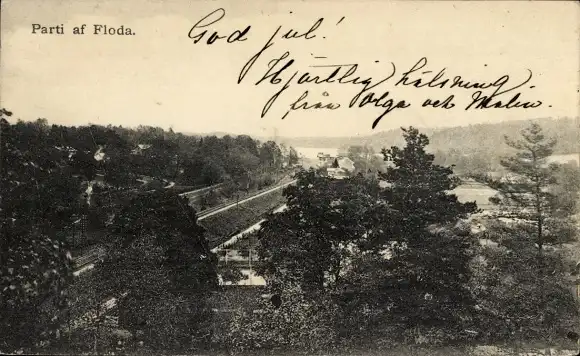 Parti af Floda.
God jul!
Hjärtlig hälsning
från Olga och Malin.